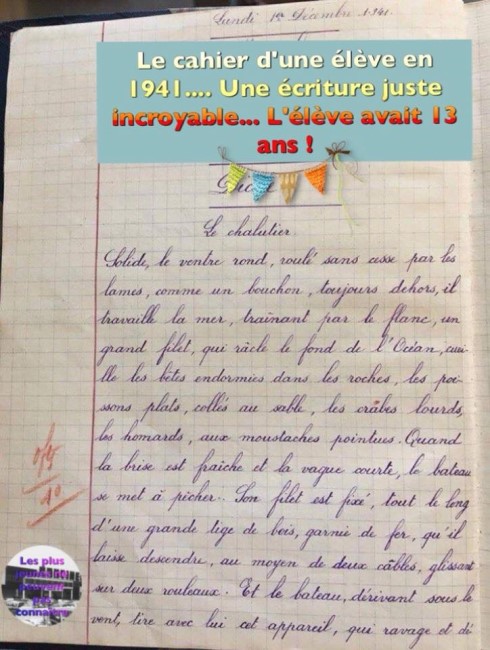 Lundi 1er Décembre 1941.
Le cahier d'une élève en
1941.... Une écriture juste
incroyable... L'élève avait 13
ans !
Le chalutier.
Solide, le ventre rond, roulé sans cesse par les
lames, comme un bouchon, toujours dehors, il
travaille la mer, traînant par le flanc, un
grand filet, qui râcle le fond de l'Océan, cuei-
lle les bêtes endormies dans les roches, les poi-
ssons plats, collés au sable, les crâbes lourds,
les homards, aux moustaches pointues. Quand
la brise est fraîche et la vague courte, le bateau
se met à pêcher. Son filet est fixé, tout le long
d'une grande tige de bois, garnie de fer, qu'il
laisse descendre, au moyen de deux câbles, glissant
sur deux rouleaux. Et le bateau, dérivant sous le
vent, tire avec lui cet appareil, qui ravage et dé
10
Les plus
connaître